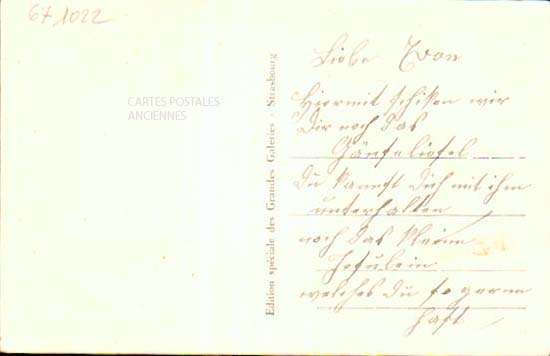 67 1022
CARTES POSTALES
ANCIENNES
Edition spéciale des Grandes Galeries - Strasbourg
Liebe Yvon
Hiermit schiken wir
Dir noch das
Gänseliesel
Du kannst Dich mit ihm
unterhalten
noch das kleine
Jesulein
welches Du so gerne
hast